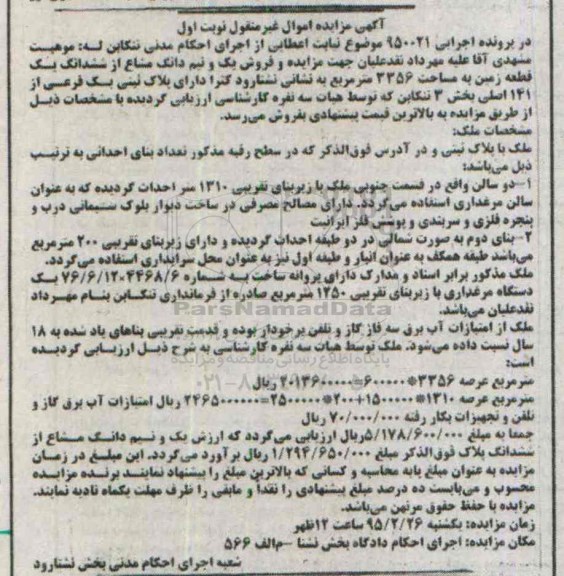 آگهی مزایده اموال غیرمنقول نوبت اول
در پرونده اجرایی ۹۵۰۰۲۱ موضوع نیابت اعطایی از اجرای احکام مدنی تنکابن له: موهبت
مشهدی آقا علیه مهرداد نقدعلیان جهت مزایده و فروش یک و نیم دانگ مشاع از ششدانگ یک
قطعه زمین به مساحت ۳۳۵۶ مترمربع به نشانی نشتارود کترا دارای پلاک ثبتی یک فرعی از
۱۴۱ اصلی بخش ۳ تنکابن که توسط هیات سه نفره کارشناسی ارزیابی گردیده با مشخصات ذیل
از طریق مزایده به بالاترین قیمت پیشنهادی بفروش می‌رسد.
مشخصات ملک:
ملک با پلاک ثبتی و در آدرس فوق‌الذکر که در سطح رقبه مذکور تعداد بنای احداثی به ترتیب
ذیل می‌باشد:
۱–دو سالن واقع در قسمت جنوبی ملک با زیربنای تقریبی ۱۳۱۰ متر احداث گردیده که به عنوان
سالن مرغداری استفاده می‌گردد. دارای مصالح مصرفی در ساخت دیوار بلوک سیمانی درب و
پنجره فلزی و سربندی و پوشش فلز ایرانیت
۲– بنای دوم به صورت شمالی در دو طبقه احداث گردیده و دارای زیربنای تقریبی ۲۰۰ مترمربع
می‌باشد طبقه همکف به عنوان انبار و طبقه اول نیز به عنوان محل سرایداری استفاده می‌گردد.
ملک مذکور برابر اسناد و مدارک دارای پروانه ساخت به شماره ۷۶/۶/۱۲،۴۴۶۸/۶ یک
دستگاه مرغداری با زیربنای تقریبی ۱۲۵۰ مترمربع صادره از فرمانداری تنکابن بنام مهرداد
نقدعلیان می‌باشد.
ملک از امتیازات آب برق سه فاز گاز و تلفن برخودار بوده و قدمت تقریبی بناهای یاد شده به ۱۸
سال نسبت داده می‌شود. ملک توسط هیات سه نفره کارشناسی به شرح ذیل ارزیابی گردیده
است:
مترمربع عرصه ۳۳۵۶*۶۰۰۰۰۰=۲۰۱۳۶۰۰۰۰۰ ریال
مترمربع عرصه ۱۳۱۰*۱۵۰۰۰۰۰+۲۰۰*۲۵۰۰۰۰۰=۲۴۶۵۰۰۰۰۰۰ ریال امتیازات آب برق گاز و
تلفن و تجهیزات بکار رفته ۷۰/۰۰۰/۰۰۰ ریال
جمعا به مبلغ ۵/۱۷۸/۶۰۰/۰۰۰ریال ارزیابی می‌گردد که ارزش یک و نیم دانگ مشاع از
ششدانگ پلاک فوق‌الذکر مبلغ ۱/۲۹۴/۶۵۰/۰۰۰ ریال برآورد می‌گردد. این مبلغ در زمان
مزایده به عنوان مبلغ پایه محاسبه و کسانی که بالاترین مبلغ را پیشنهاد نمایند برنده مزایده
محسوب و می‌بایست ده درصد مبلغ پیشنهادی را نقداً و مابقی را ظرف مهلت یکماه تادیه نمایند.
مزایده با حفظ حقوق مرتهن می‌باشد.
زمان مزایده: یکشنبه ۹۵/۲/۲۶ ساعت ۱۲ظهر
مکان مزایده: اجرای احکام دادگاه بخش نشتا –م‌الف ۵۶۶
شعبه اجرای احکام مدنی بخش نشتارود
ParsNamadData
پایگاه اطلاع رسانی مناقصه و مزایده